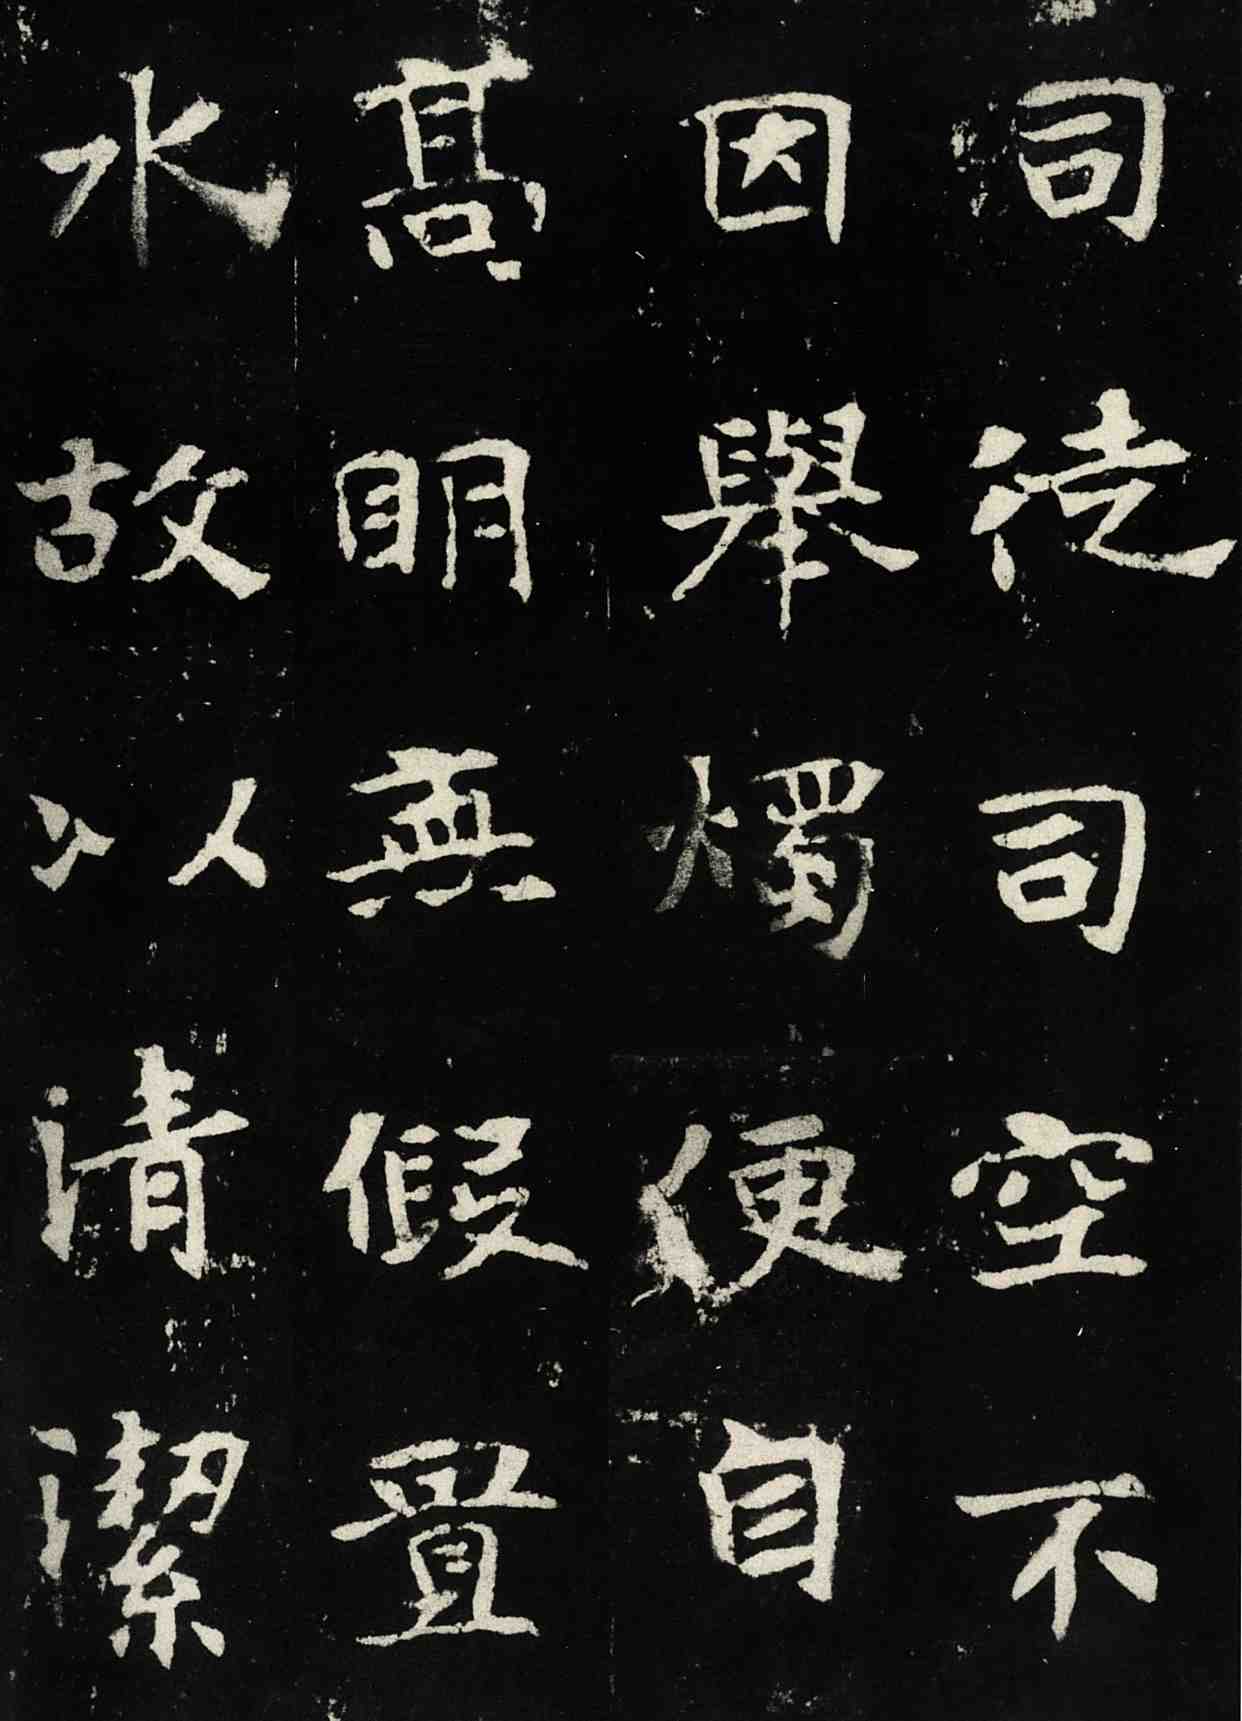 司徒司空不
因舉燭便自
高明無假置
水故以清潔